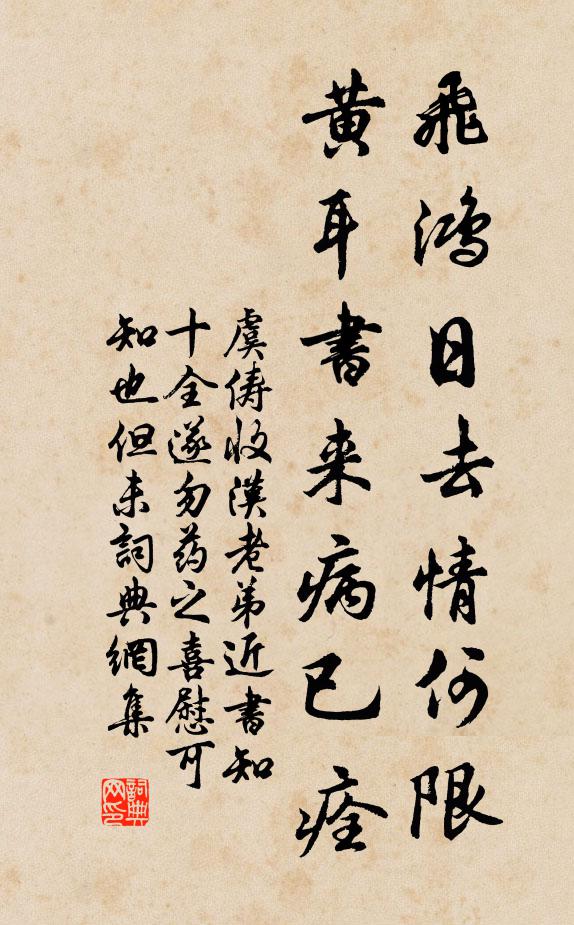 飛鴻日去情何限
黃耳書来病已痊
虞儔收漢老弟近書知
十全遂勿药之喜慰可
知也但未詞典網集
詞典网印